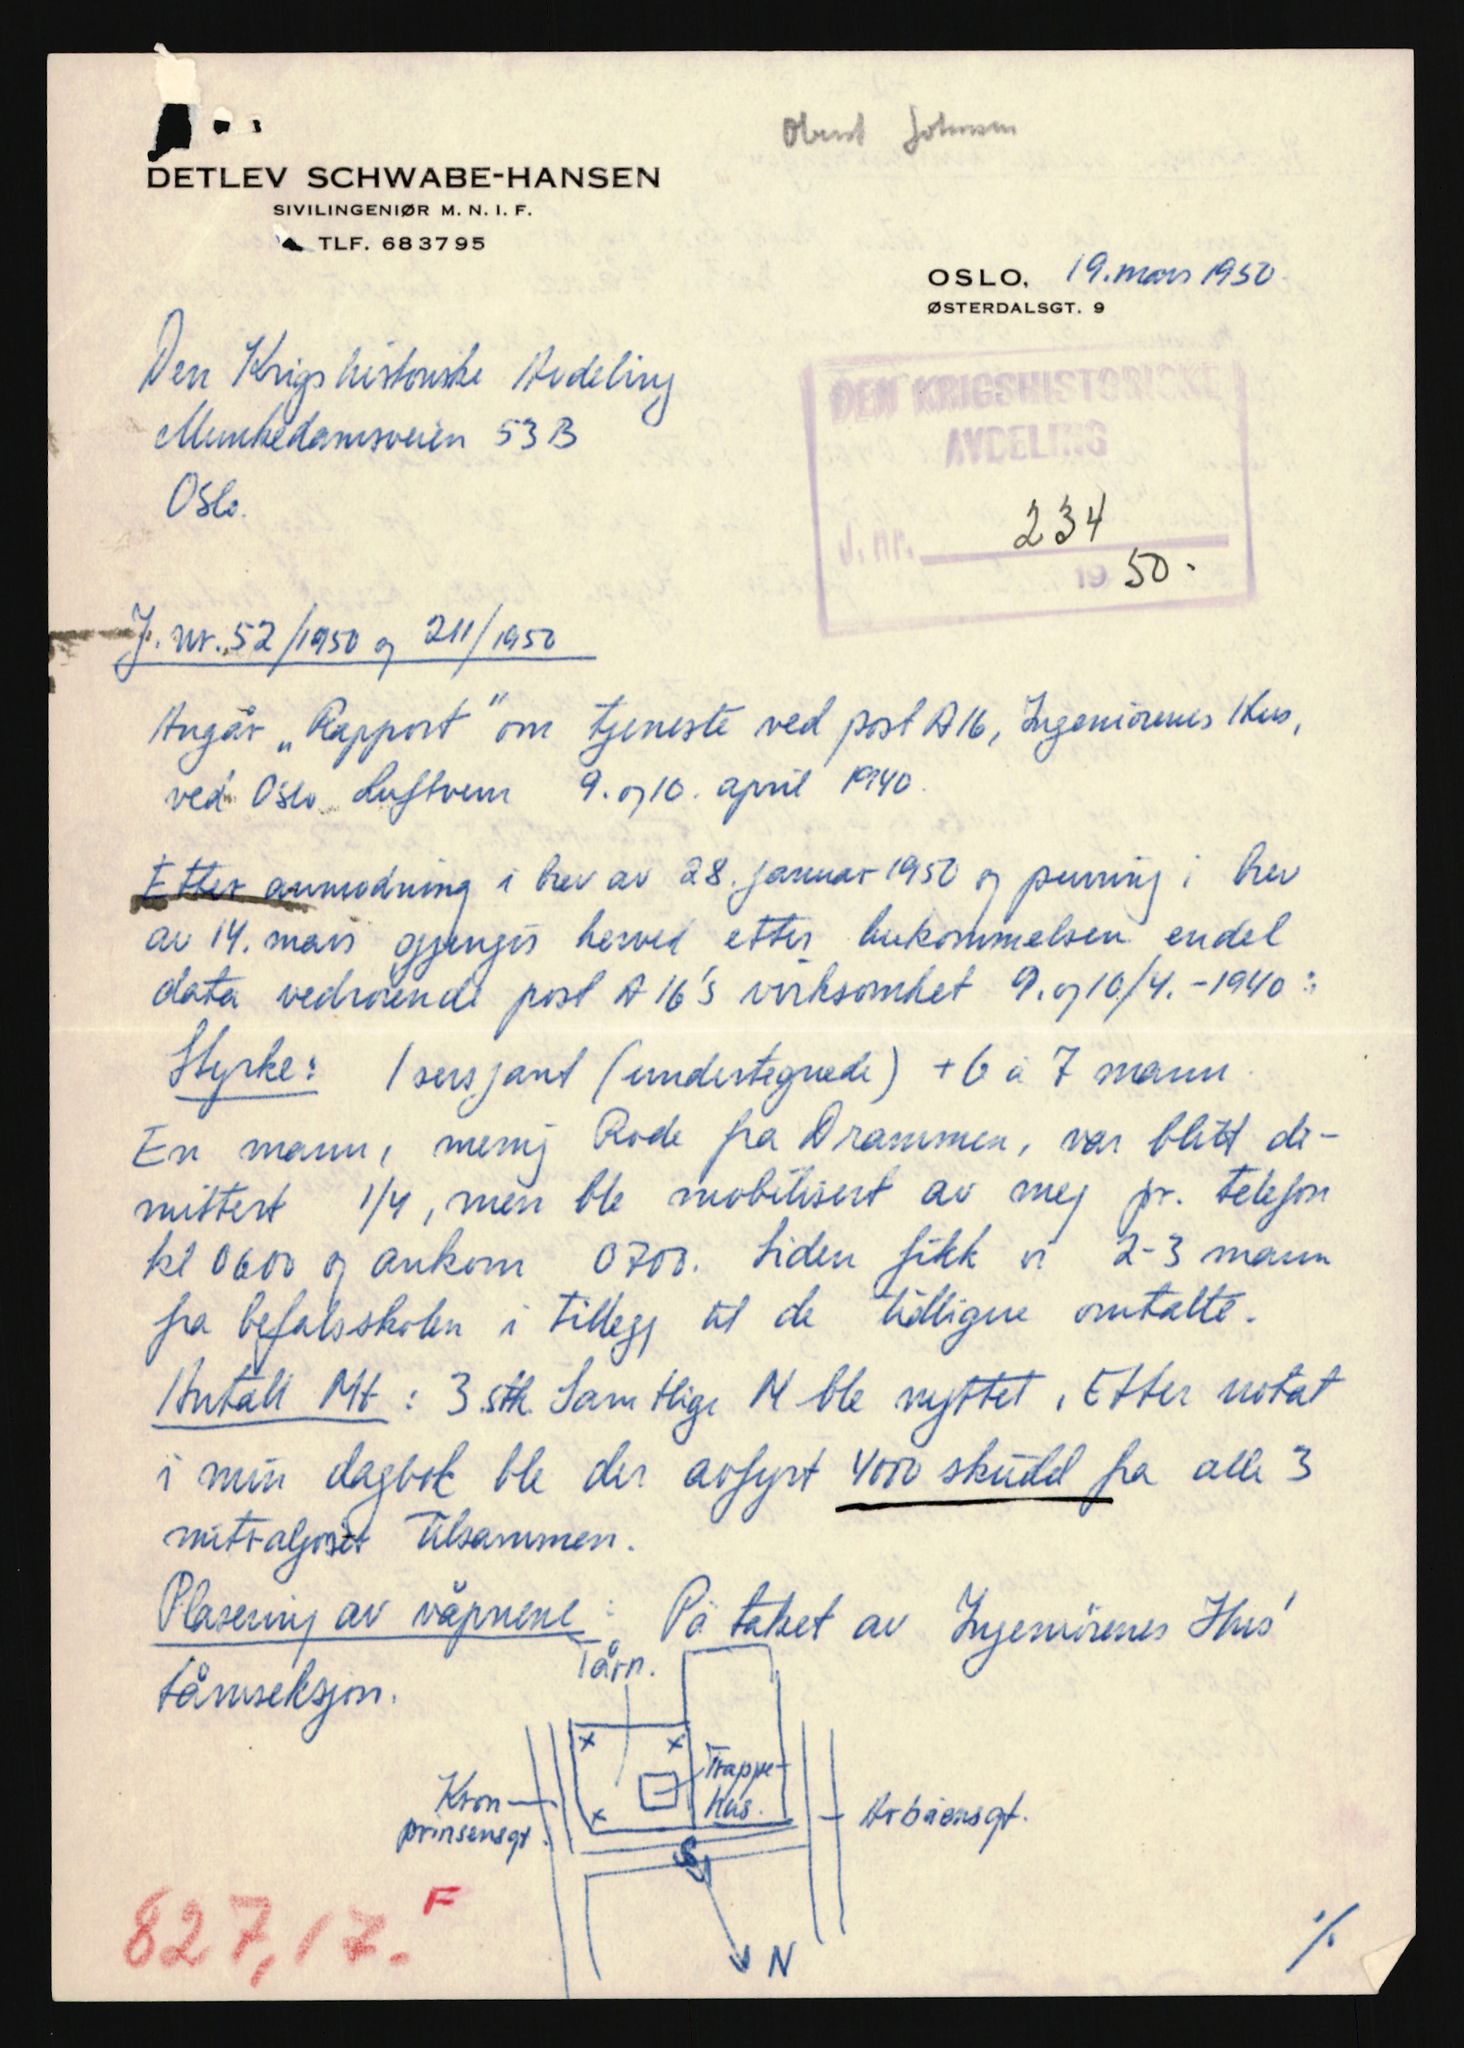 Oberst Johnsen
DETLEV SCHWABE-HANSEN
SIVILINGENIØR M. N. I. F.
TLF. 683795
OSLO, 19. mars 1950.
ØSTERDALSGT. 9
Den Krigshistoriske Avdeling
Munkedamsveien 53 B
Oslo.
DEN KRIGSHISTORISKE
AVDELING
J. nr. 234
19 50.
J. nr. 52/1950 og 211/1950
Angår „Rapport" om tjeneste ved post A 16, Ingeniörenes Hus,
ved Oslo Luftvern 9. og 10. april 1940.
Etter anmodning i brev av 28. januar 1950 og purring i brev
av 14. mars gjengis herved etter hukommelsen endel
data vedrörende post A 16's virksomhet 9. og 10/4. - 1940:
Styrke: 1 sersjant (undertegnede) + 6 à 7 mann.
En mann, menig Rode fra Drammen, var blitt di-
mittert 1/4, men ble mobilisert av meg pr. telefon
kl 0600 og ankom 0700. Siden fikk vi 2-3 mann
fra befalsskolen i tillegg til de tidligere omtalte.
Antall Mt: 3 stk. Samtlige M ble nyttet. Etter notat
i min dagbok ble der avfyrt 4000 skudd fra alle 3
mitraljöser tilsammen.
Plasering av våpnene: På taket av Ingeniörenes Hus'
tårnseksjon.
Tårn.
Trappe-
hus.
Kron
prinsensgt.
Arbiensgt.
N
827,17. F
./.